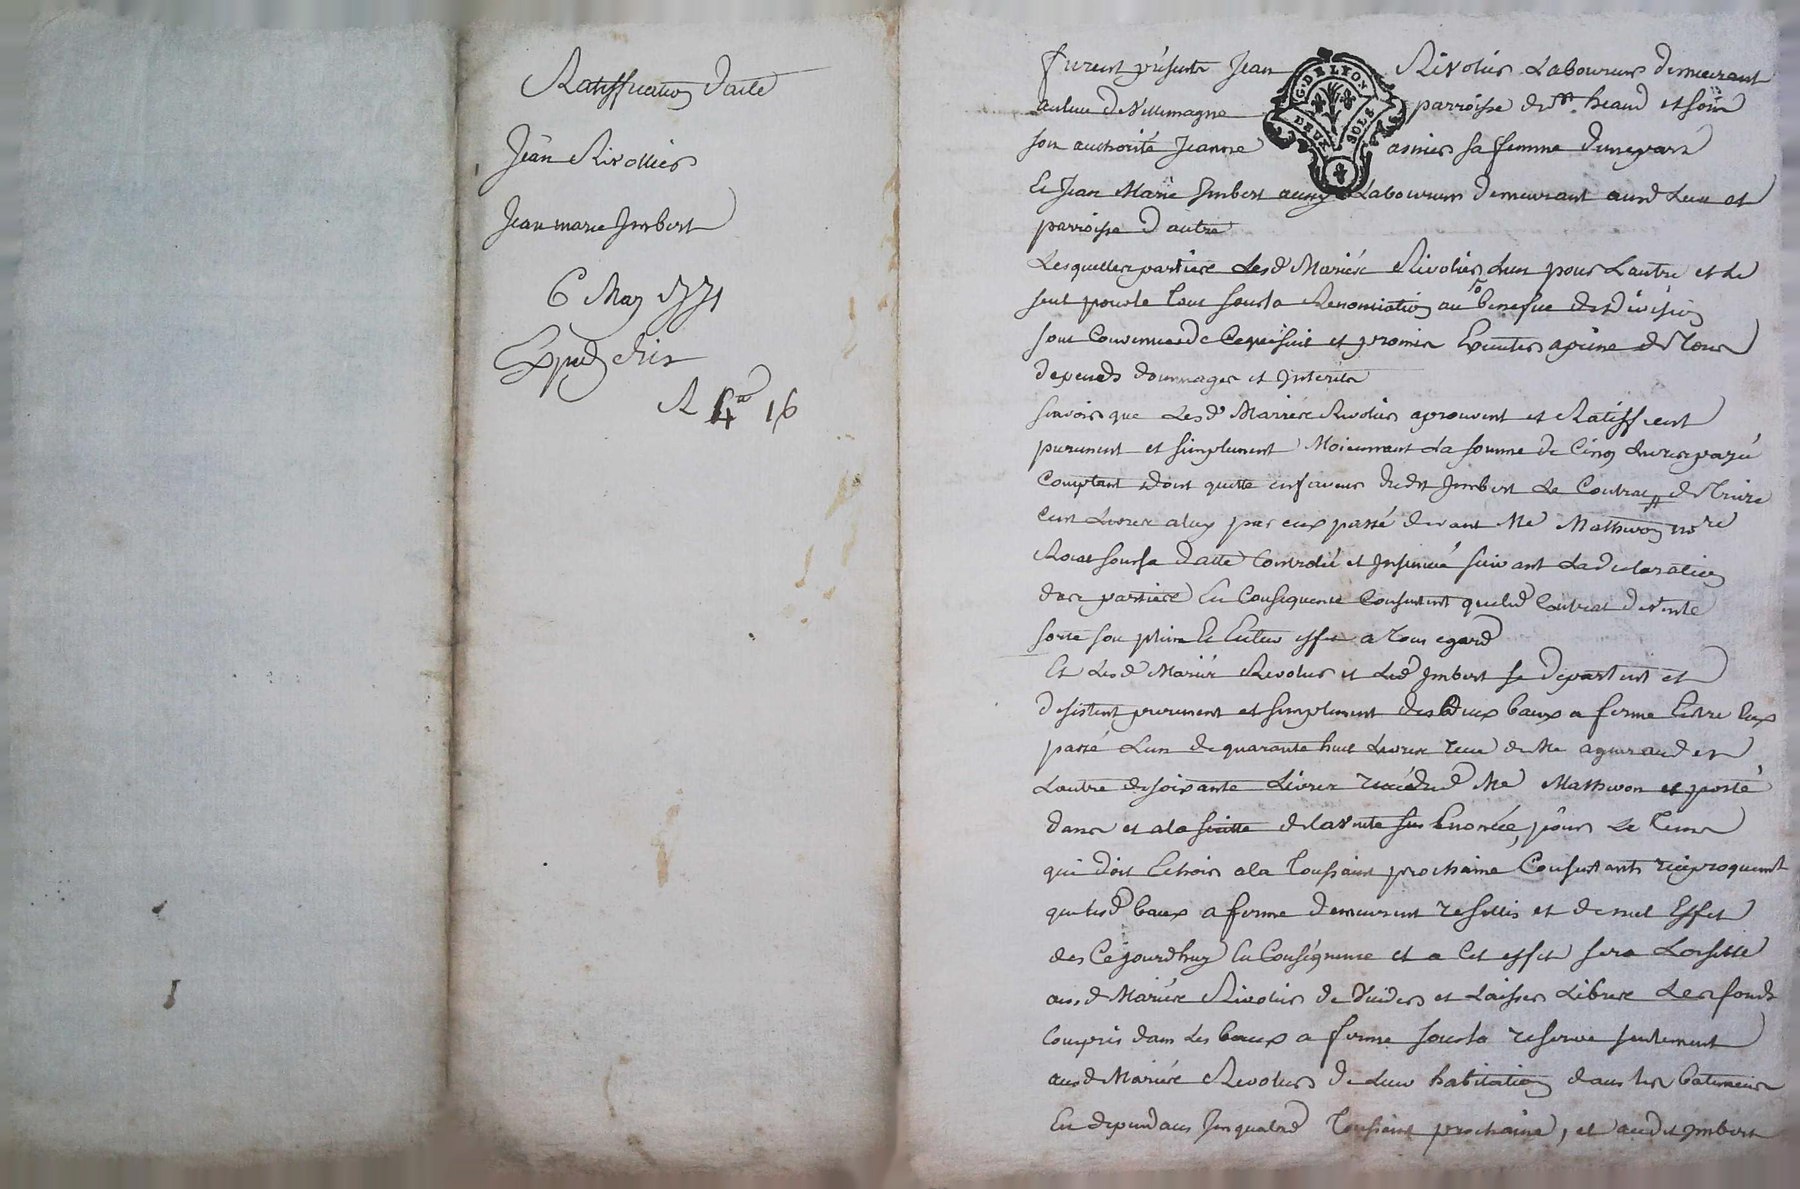 Ratiffication d'acte
Jean Rivollier
Jean marie Imbert
6 May 1771
Exped
R 16
furent présents Jean Rivolier Laboureur demeurant
au lieu de Villemagne parroisse de heand et sous
son authorité Jeanne asnier sa femme d'une part
Et Jean Marie Imbert aussy Laboureur demeurant aud Lieu et
parroisse d'autre
Lesquelles parties Lesd Mariés Rivolier L'un pour Lautre et Le
seul pour le tout sous la Renonciation au benefice de division
sont Convenues de Ce qui suit et promis Executer a peine de tous
depends dommages et Interets
Savoir que Lesd Mariés Rivolier aprouvent et Ratiffient
purement et simplement Moiennant La somme de Cinq Livres payé
Comptant dont quitte en faveur dudit Imbert Le Contrat de
Cent Livres a luy par eux passé devant Me Mathevon nore
Roial sous sa datte Controllé et Insinué suivant La declaration
des parties En Consequence Consentent que led Contrat de vente
sorte son plein Et Entier effet a tous egard
Et Lesd Mariés Rivolier et Led Imbert se departent et
desistent purement et simplement des deux baux a ferme Entre Eux
passé L'un de quarante huit Livres receu de Me aguiraud et
Lautre de soixante Livres dud Me Mathevon et porté
dans et a la suitte de la vente sus Enoncée, pour Le tems
qui doit Echoir a la Toussaint prochaine Consentants reciproquement
que lesd baux a ferme demeurent resillis et de nul Effet
des Cejourdhuy En Conséquence et a Cet effet sera Loisible
auxd Mariés Rivolier de Vuider et Laisser Libres Les fonds
Compris dans Les baux a ferme sous la reserve seulement
auxd Mariés Rivolier de Leur habitation dans les batimens
En dependans Jusqua lad Toussaint prochaine, et audit Imbert
G. DE LYON
DEUX SOLS